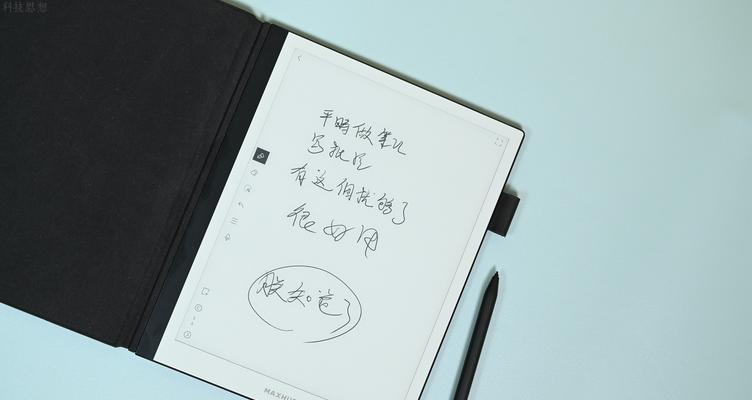 科技思想
平时做笔记
写批注
有这个就够了
很好用
MAXHU